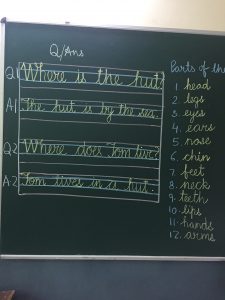 Q/Ans
Q1 Where is the hut?
A1 The hut is by the sea.
Q2 Where does Tom live?
A.2 Tom lives in a hut.
Parts of the
1. head
2. legs
3. eyes
4. ears
5. nose
6. chin
7. feet
8. neck
9. teeth
10. lips
11. hands
12. arms